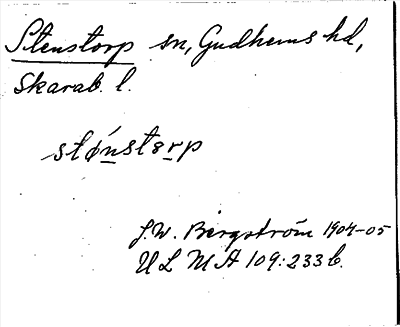 Stenstorp sn, Gudhems hd,
Skarab. l.
stǿnstørp
J. W. Bergström 1904-05
ULMA 109:233 b.